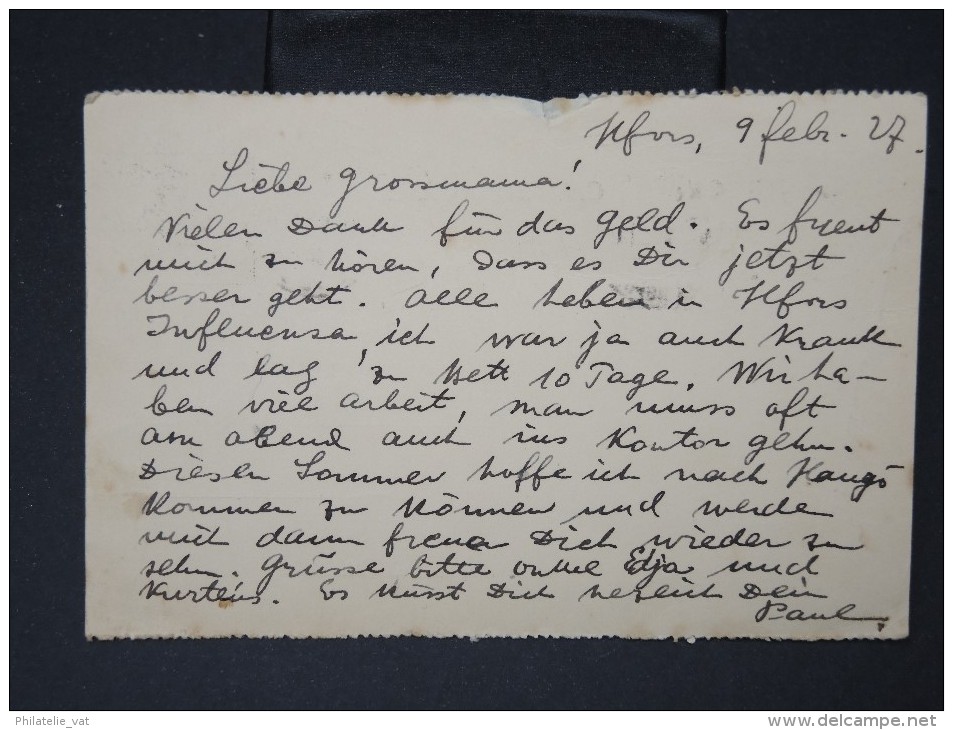 Hfors, 9 febr. 27.
Liebe Grossmama!
Vielen Dank für das Geld. Es freut
mich zu hören, dass es Dir jetzt
besser geht. Alle haben in Hfors
Influensa, ich war ja auch krank
und lag zu Bett 10 Tage. Wir ha-
ben viel arbeit, man muss oft
am abend auch ins Kontor gehn.
Diesen Sommer hoffe ich nach Hangö
kommen zu können und werde
mich dann freuen Dich wieder zu
sehn. Grüsse bitte onkel Edja und
Kurtens. Es küsst Dich herzlich Dein
Paul
Philatelie_vat
www.delcampe.net